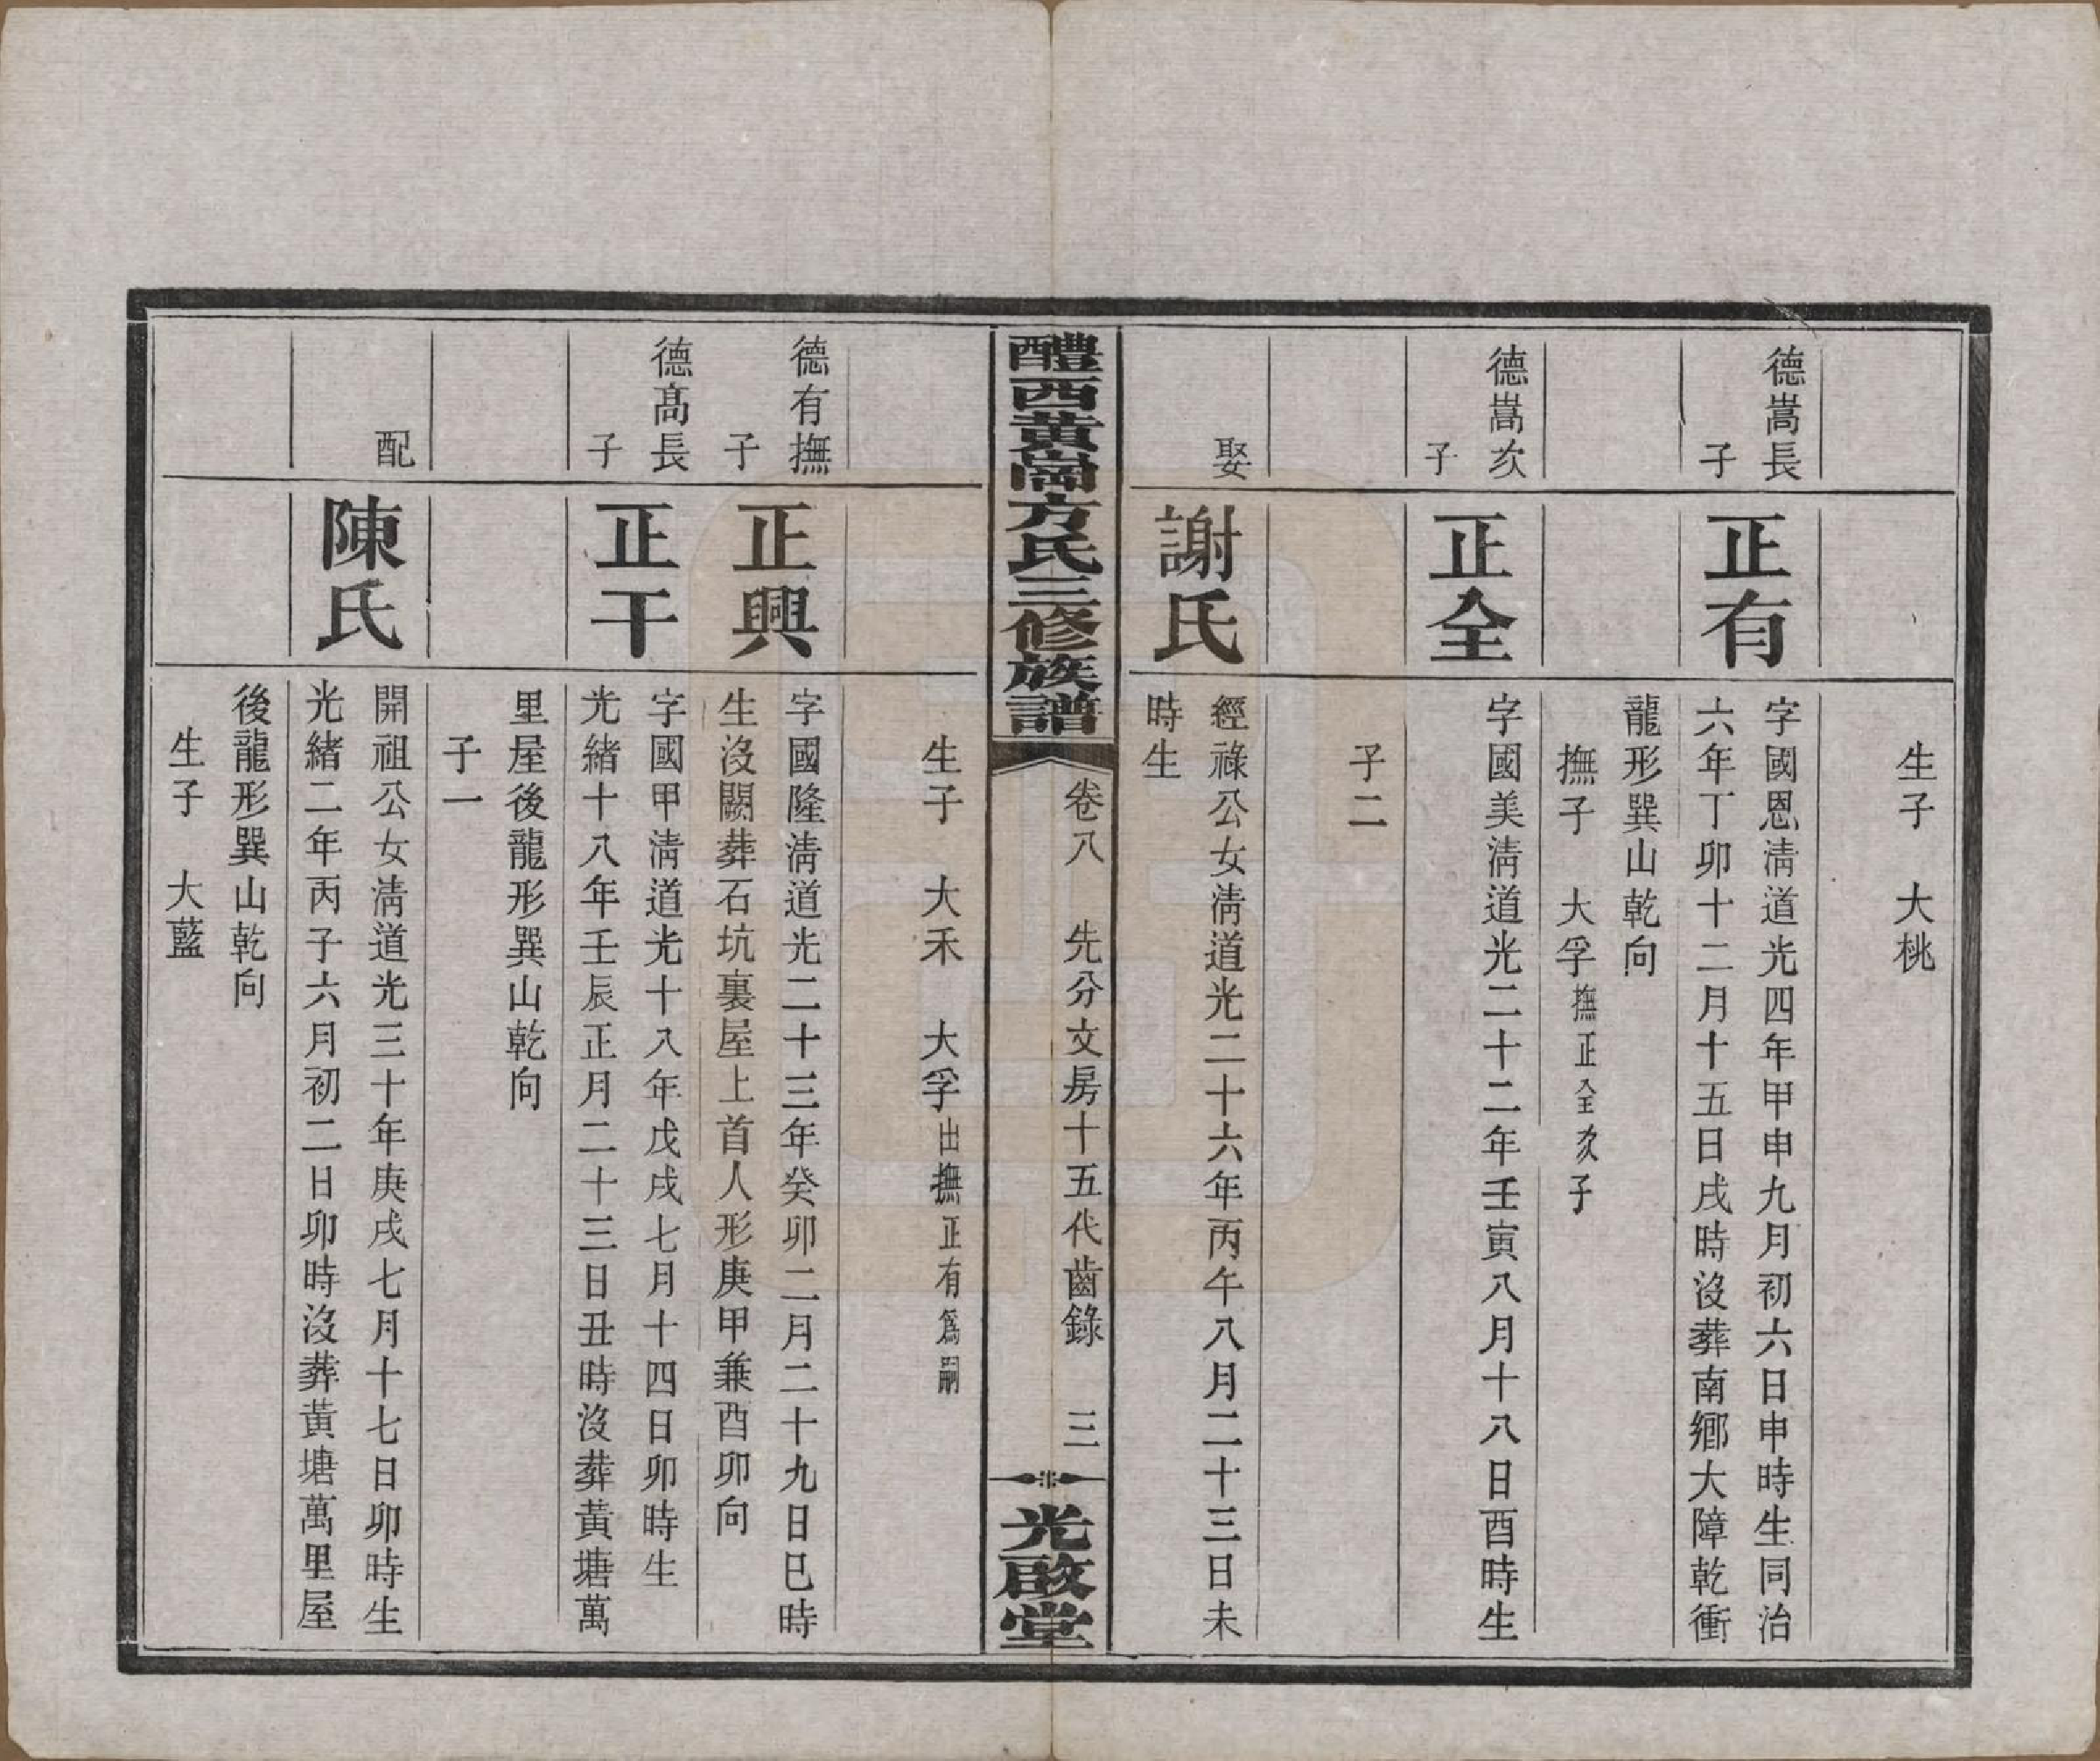 生子　大桃
德嵩長
子
正有
字國恩淸道光四年甲申九月初六日申時生同治
六年丁卯十二月十五日戌時沒葬南鄉大障乾衝
龍形巽山乾向
撫子　大孚撫正全次子
德嵩次
子
正全
字國美淸道光二十二年壬寅八月十八日酉時生
子二
娶
謝氏
經祿公女淸道光二十六年丙午八月二十三日未
時生
醴西黃崗方氏三修族譜
卷八　先分文房十五代齒錄　三
光啟堂
生子　大禾　大孚出撫正有爲嗣
德有撫
子
正興
字國隆淸道光二十三年癸卯二月二十九日巳時
生沒闕葬石坑裏屋上首人形庚甲兼酉卯向
德高長
子
正干
字國甲淸道光十八年戊戌七月十四日卯時生
光緒十八年壬辰正月二十三日丑時沒葬黃塘萬
里屋後龍形巽山乾向
子一
配
陳氏
開祖公女淸道光三十年庚戌七月十七日卯時生
光緒二年丙子六月初二日卯時沒葬黃塘萬里屋
後龍形巽山乾向
生子　大藍